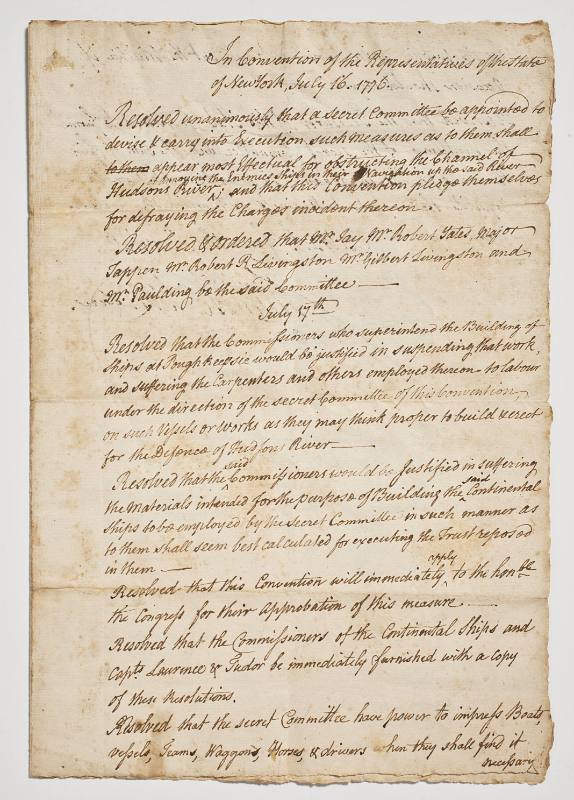 In Convention of the Representatives of the State
of New York, July 16. 1776.
Resolved unanimously that a secret Committee be appointed to
devise & carry into Execution such measures as to them shall
to them appear most Effectual for obstructing the Channel of
annoying the Enemies Ships in their Navigation up the said River
Hudsons River, and that this Convention pledge themselves
for defraying the Charges incident thereon.
Resolved & ordered that Mr. Jay Mr. Robert Yates, Major
Tappen Mr. Robert R Livingston Mr. Gilbert Livingston and
Mr. Paulding be the said Committee —
July 17th
Resolved that the Commissioners who superintend the Building of
Ships at Poughkeepsie would be justified in suspending that work,
and suffering the Carpenters and others employed thereon to labour
under the direction of the secret Committee of this Convention
on such Vessels or works as they may think proper to build & erect
for the Defence of Hudsons River —
said
Resolved that the Commissioners would be Justified in suffering
said
the materials intended for the purpose of Building the Continental
Ships to be employed by the Secret Committee in such manner as
to them shall seem best calculated for executing the Trust reposed
in them —
apply
Resolved that this Convention will immediately to the honble
the Congress for their Approbation of this measure. —
Resolved that the Commissioners of the Continental Ships and
Capts Laurence & Tudor be immediately furnished with a copy
of these Resolutions.
Resolved that the secret Committee have power to impress Boats,
vessels, Teams, Waggons, Horses, & drivers when they shall find it
necessary